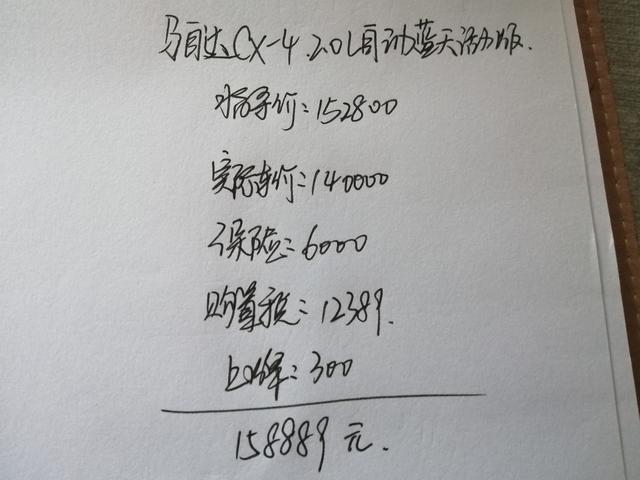 马自达CX-4 2.0L自动蓝天活力版.
指导价:152800
实际车价:140000
保险:6000
购置税:12389.
上牌:300
158889元.